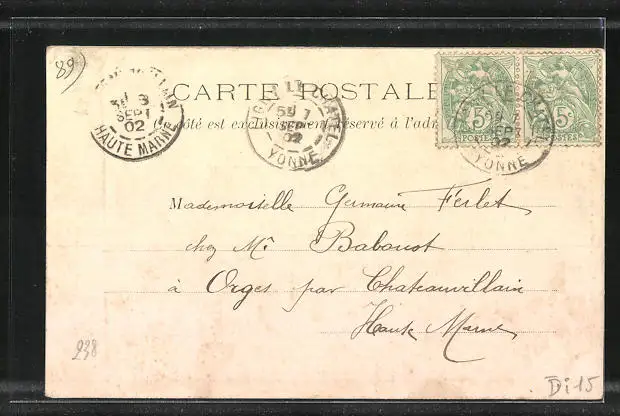 89)
CARTE POSTALE
côté est exclusivement réservé à l'adr
3E 3
SEPT
02
HAUTE MARNE
5E 7
SEPT
02
YONNE
5c 5c
POSTES
YONNE
Mademoiselle Germaine Ferlet
chez Mr Babouot
à Orges par Chateauvillain
Haute Marne
238
Di 15